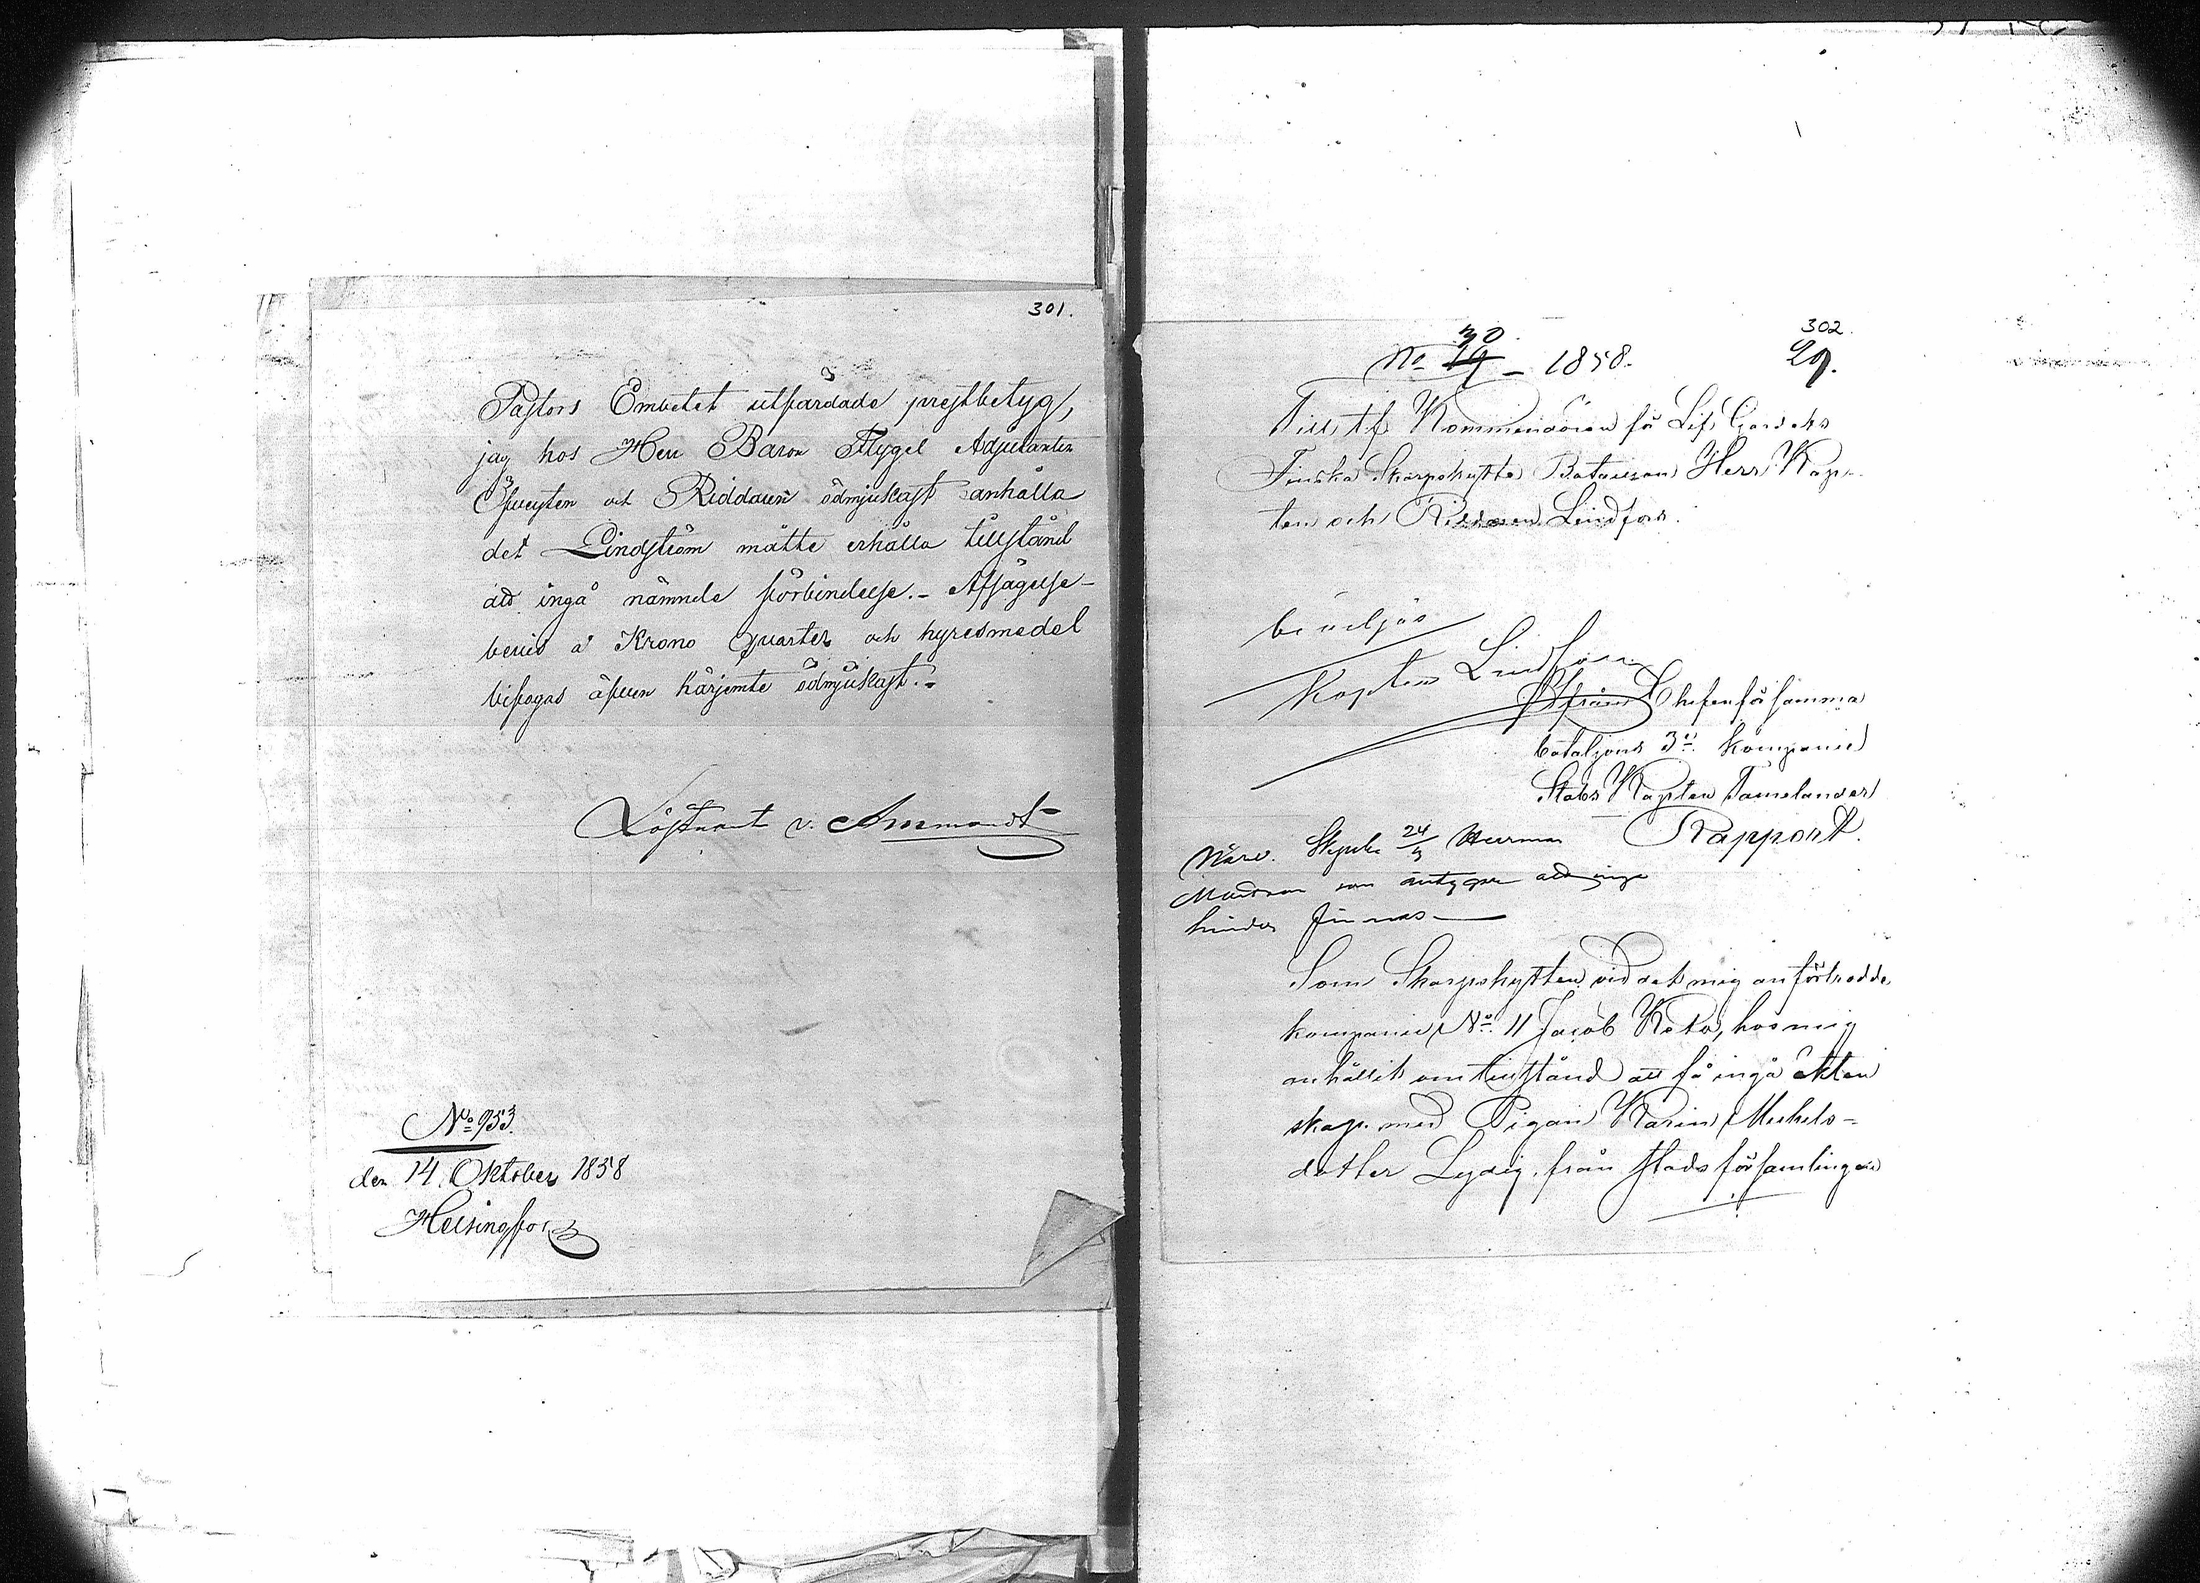 301.
Pastors Embetet utfärdade prestbetyg,
jag hos Herr Baron Flygel Adjutanten
Öfversten och Riddaren ödmjukast anhålla
det Lindström måtte erhålla tillstånd
att ingå nämnde förbindelse. - Afsägelse-
bevis å Krono Quarter och hyresmedel
bifogas äfven härjemte ödmjukast. -
Löjtnant v. Ammondt
No 953.
den 14 Oktober 1858
Helsingfors
302.
30
No 19 - 1858.
29.
Till tf Kommendören för Lif Gardets
Finska Skarpskytte Bataillon Herr Kap-
ten och Riddaren Lindfors.
beviljas
Kapten Lindfors
Ifrån Chefen för samma
bataljons 3e kompanie
Stabs Kapten Tamelander
Rapport.
Närv. Skpsk. 24/3 Herman
Madsson som intygar att inga
hinder finnas
Som Skarpskytten vid det mig anförtrodde
kompanie No 11 Jacob Keto, hos mig
anhållit om tillstånd att få ingå äkten
skap med Pigan Karin Michels-
dotter Lydig, från Stadsförsamlingen